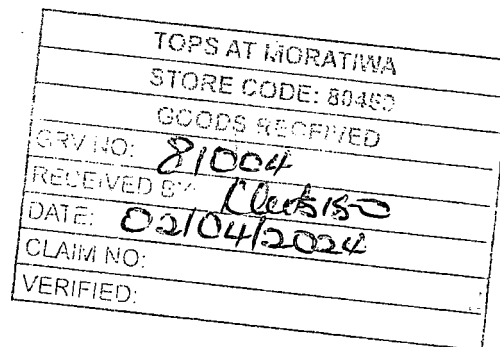 TOPS AT MORATIWA
STORE CODE: 80460
GOODS RECEIVED
GRV NO: 81004
RECEIVED BY:
DATE: 02/04/2024
CLAIM NO:
VERIFIED: